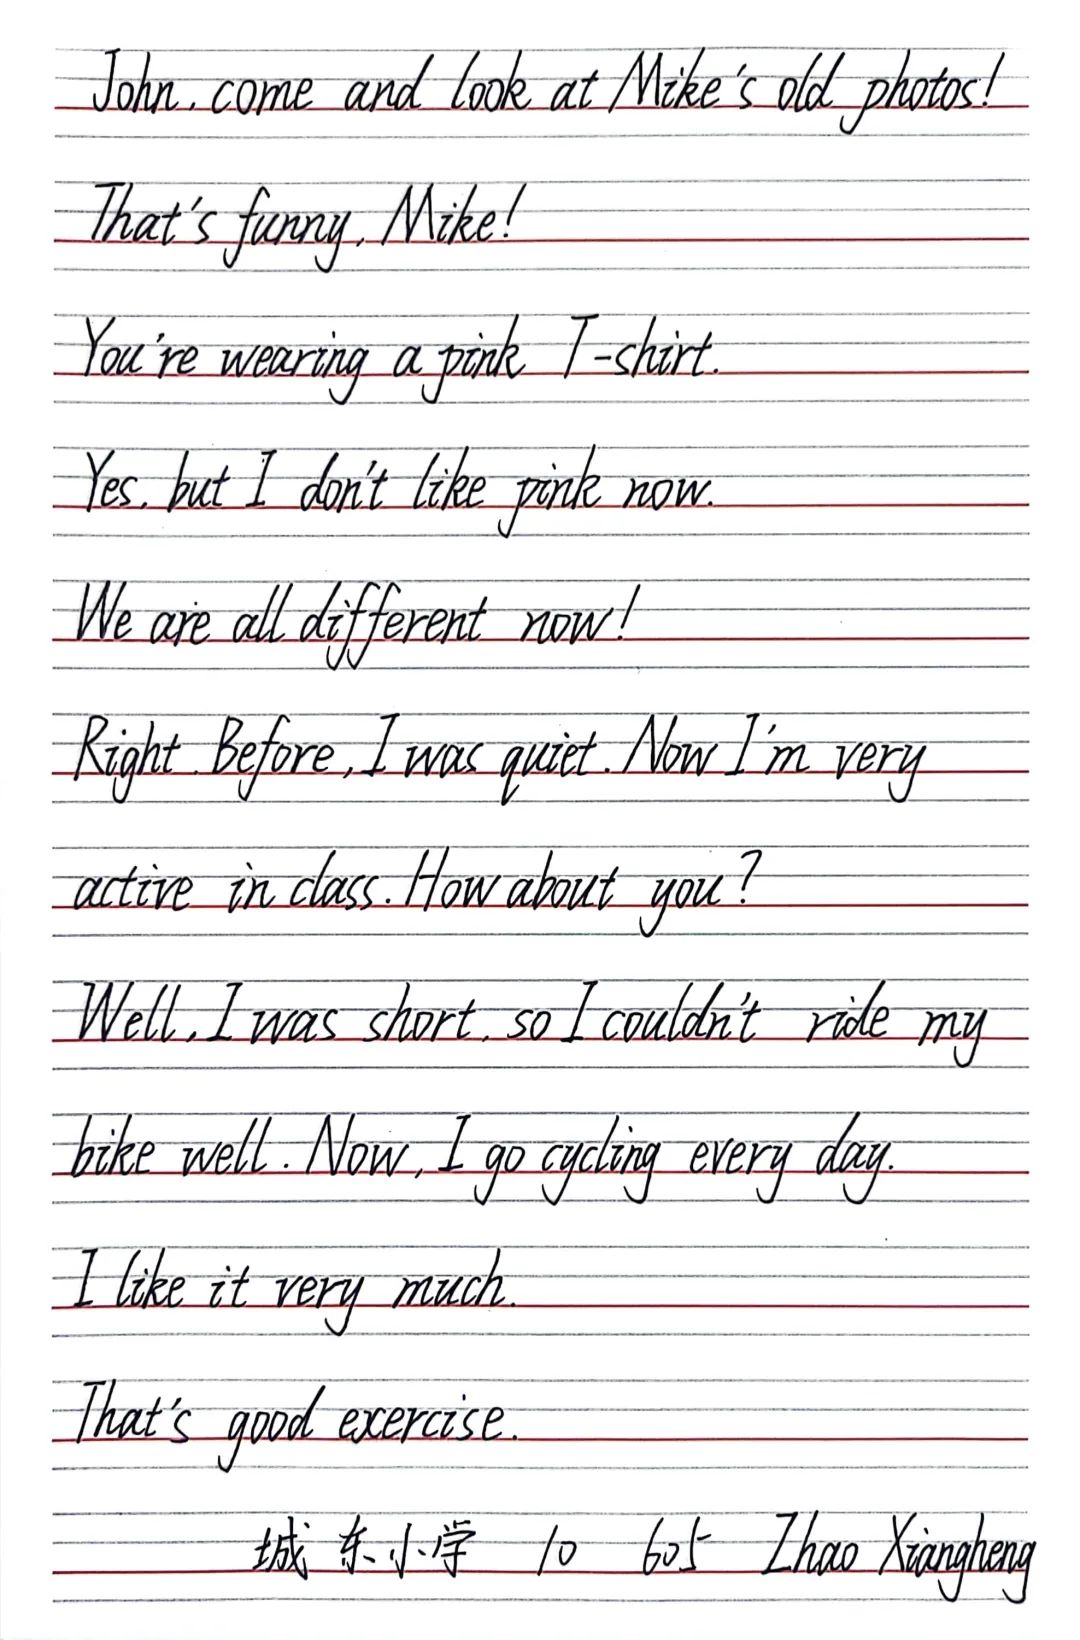 John, come and look at Mike's old photos!
That's funny, Mike!
You're wearing a pink T-shirt.
Yes, but I don't like pink now.
We are all different now!
Right. Before, I was quiet. Now I'm very
active in class. How about you?
Well, I was short, so I couldn't ride my
bike well. Now, I go cycling every day.
I like it very much.
That's good exercise.
城东小学 10 605 Zhao Xiangheng